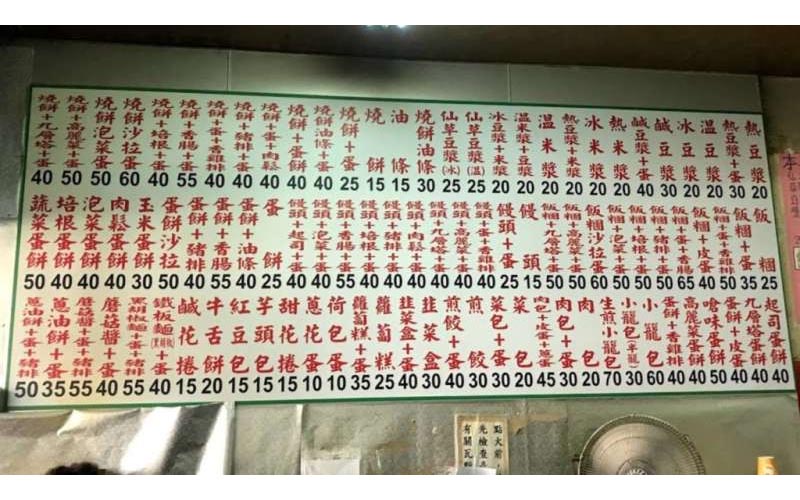 熱豆漿 20
熱豆漿+蛋 30
溫豆漿 20
冰豆漿 20
鹹豆漿 30
鹹豆漿+蛋 40
熱米漿 20
冰米漿 20
熱豆漿+米漿 20
溫米漿 20
溫米漿+豆漿 20
冰豆漿+米漿 20
仙草豆漿(溫) 25
仙草豆漿(冰) 25
燒餅油條 30
油條 15
燒餅 15
燒餅+蛋 25
燒餅油條+蛋 40
燒餅+蛋餅 40
燒餅+蛋+肉鬆 40
燒餅+蛋+豬排 40
燒餅+蛋+香雞排 40
燒餅+蛋+香腸 55
燒餅+培根+蛋 40
燒餅沙拉蛋 60
燒餅泡菜蛋 50
燒餅+高麗菜+蛋 50
燒餅+九層塔+蛋 40
飯糰 25
飯糰+蛋 35
飯糰+皮蛋 40
飯糰+香腸+蛋 65
飯糰+豬排+蛋 50
飯糰+泡菜+蛋 50
飯糰沙拉蛋 60
飯糰+高麗菜+蛋 50
飯糰+九層塔+蛋 50
饅頭 15
饅頭+蛋 25
饅頭+蛋+香雞排 40
饅頭+高麗菜+蛋 40
饅頭+九層塔+蛋 40
饅頭+蛋+豬排 40
饅頭+培根+蛋 40
饅頭+香腸+蛋 55
饅頭+泡菜+蛋 40
饅頭+起司+蛋 40
蛋餅 25
蛋餅+油條 40
蛋餅+香腸 55
蛋餅+豬排 40
蛋餅沙拉 50
玉米蛋餅 30
肉鬆蛋餅 40
泡菜蛋餅 40
培根蛋餅 40
蔬菜蛋餅 50
起司蛋餅 40
九層塔蛋餅 40
蛋餅+皮蛋 40
嗆味蛋餅 50
高麗菜蛋餅 40
蛋餅+香雞排 40
小籠包 60
小籠包(半籠) 30
生煎小籠包 70
肉包 20
肉包+蛋 30
肉包+皮蛋+蔥蛋 45
菜包 20
菜包+蛋 30
煎餃 30
煎餃+蛋 40
韭菜盒 30
韭菜盒+蛋 40
蘿蔔糕 25
蘿蔔糕+蛋 35
荷包蛋 10
蔥花捲 10
甜花捲 15
芋頭包 15
紅豆包 15
牛舌餅 20
鹹花捲 15
鐵板麵(黑胡椒) 40
黑胡椒麵+蛋+豬排 55
蘑菇醬+蛋 40
蘑菇醬+蛋+豬排 55
蔥油餅+蛋 35
蔥油餅+蛋+豬排 50
點火前
先檢查
有關瓦